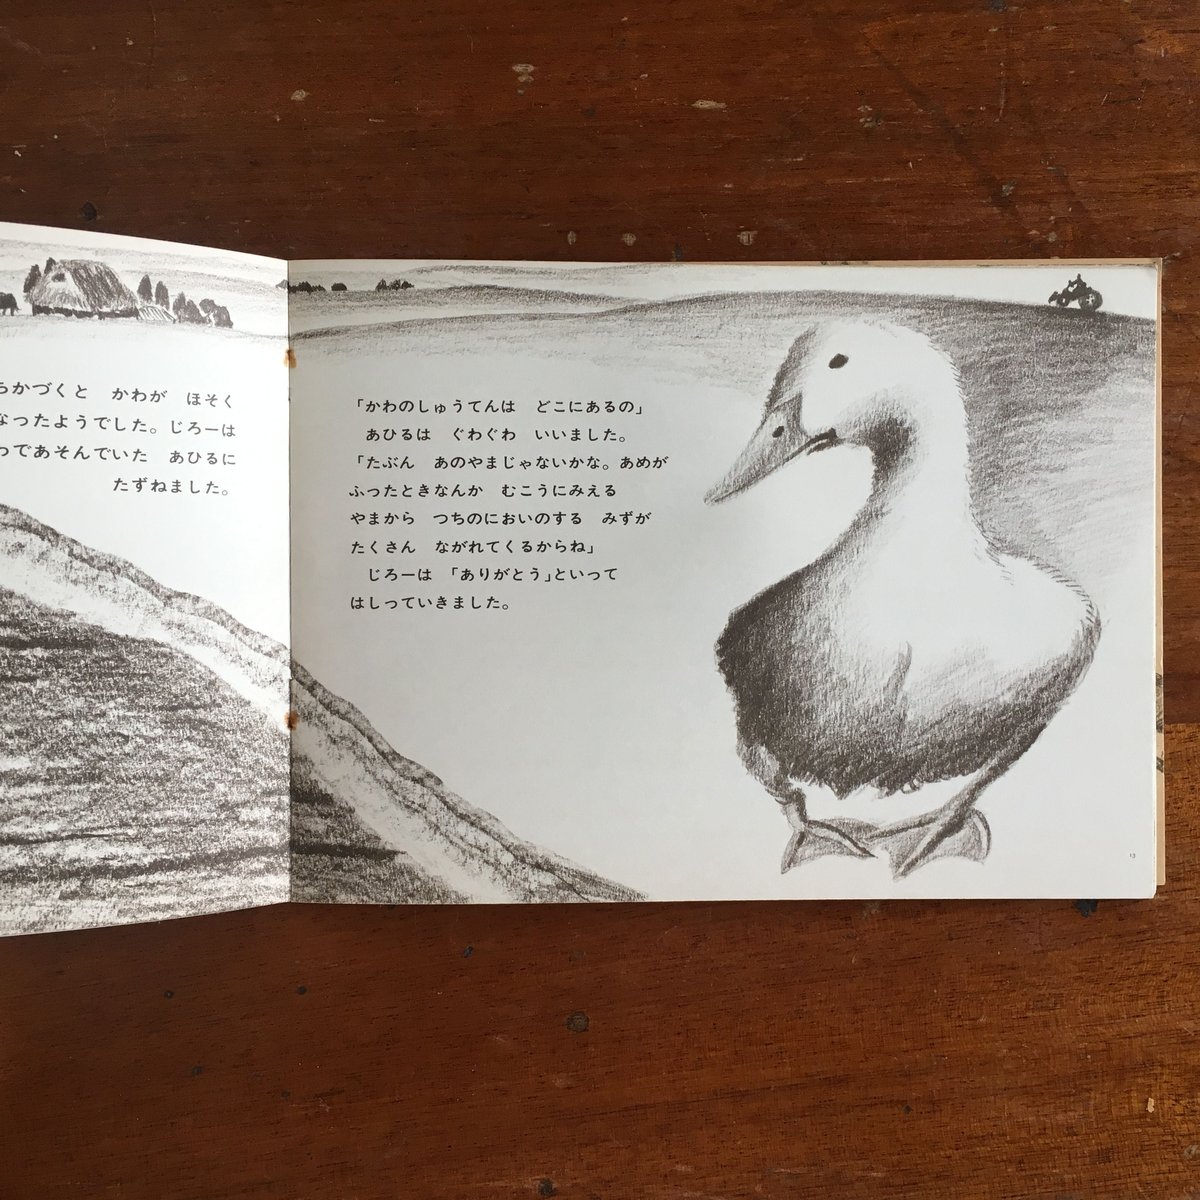 かづくと　かわが　ほそく
なったようでした。じろーは
であそんでいた　あひるに
たずねました。
「かわのしゅうてんは　どこにあるの」
あひるは　ぐわぐわ　いいました。
「たぶん　あのやまじゃないかな。あめが
ふったときなんか　むこうにみえる
やまから　つちのにおいのする　みずが
たくさん　ながれてくるからね」
じろーは　「ありがとう」といって
はしっていきました。
13